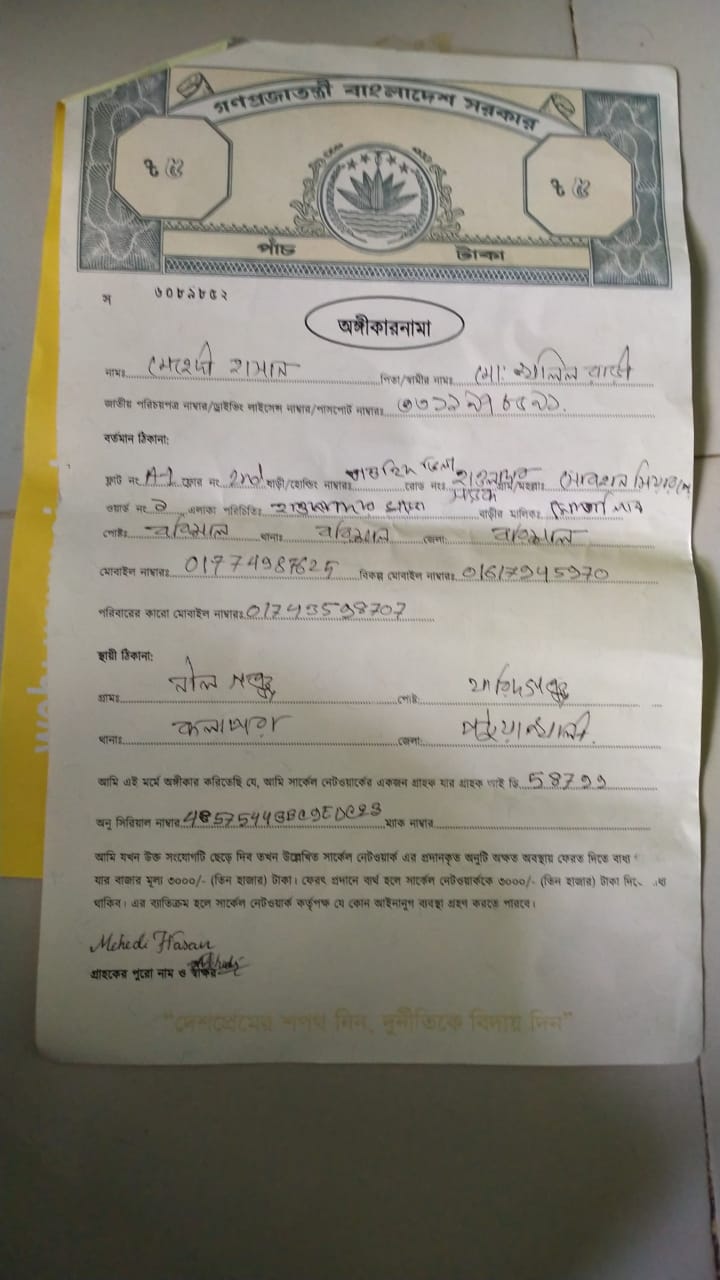 গণপ্রজাতন্ত্রী বাংলাদেশ সরকার
৳ ৫ ৳ ৫
পাঁচ টাকা
স ৬০৮৯৮৫২
অঙ্গীকারনামা
নামঃ মেহেদী হাসান পিতা/স্বামীর নামঃ মো: খলিল
জাতীয় পরিচয়পত্র নাম্বার/ড্রাইভিং লাইসেন্স নাম্বার/পাসপোর্ট নাম্বারঃ
বর্তমান ঠিকানা:
ফ্লাট নং A-1 ফ্লোর নং 2nd বাড়ী/হোল্ডিং নাম্বারঃ রোড নংঃ গ্রাম/মহল্লাঃ
ওয়ার্ড নং এলাকা পরিচিতিঃ বাড়ীর মালিকঃ
পোষ্টঃ বরিশাল থানাঃ বরিশাল জেলা: বরিশাল
মোবাইল নাম্বারঃ 01774987625 বিকল্প মোবাইল নাম্বারঃ 01617945970
পরিবারের কারো মোবাইল নাম্বারঃ 01743598707
স্থায়ী ঠিকানা:
গ্রামঃ নীলগঞ্জ পোষ্ট:
থানাঃ কলাপাড়া জেলা: পটুয়াখালী
আমি এই মর্মে অঙ্গীকার করিতেছি যে, আমি সার্কেল নেটওয়ার্কের একজন গ্রাহক যার গ্রাহক আই ডি 58799
অনু সিরিয়াল নাম্বার 48575443BC9EDC23 ম্যাক নাম্বার
আমি যখন উক্ত সংযোগটি ছেড়ে দিব তখন উল্লেখিত সার্কেল নেটওয়ার্ক এর প্রদানকৃত অনুটি অক্ষত অবস্থায় ফেরত দিতে বাধ্য
যার বাজার মূল্য ৩০০০/- (তিন হাজার) টাকা। ফেরৎ প্রদানে ব্যর্থ হলে সার্কেল নেটওয়ার্ককে ৩০০০/- (তিন হাজার) টাকা দিতে
থাকিব। এর ব্যতিক্রম হলে সার্কেল নেটওয়ার্ক কর্তৃপক্ষ যে কোন আইনানুগ ব্যবস্থা গ্রহণ করতে পারবে।
Mehedi Hasan
গ্রাহকের পুরো নাম ও স্বাক্ষর
"দেশপ্রেমের শপথ নিন, দুর্নীতিকে বিদায় দিন"